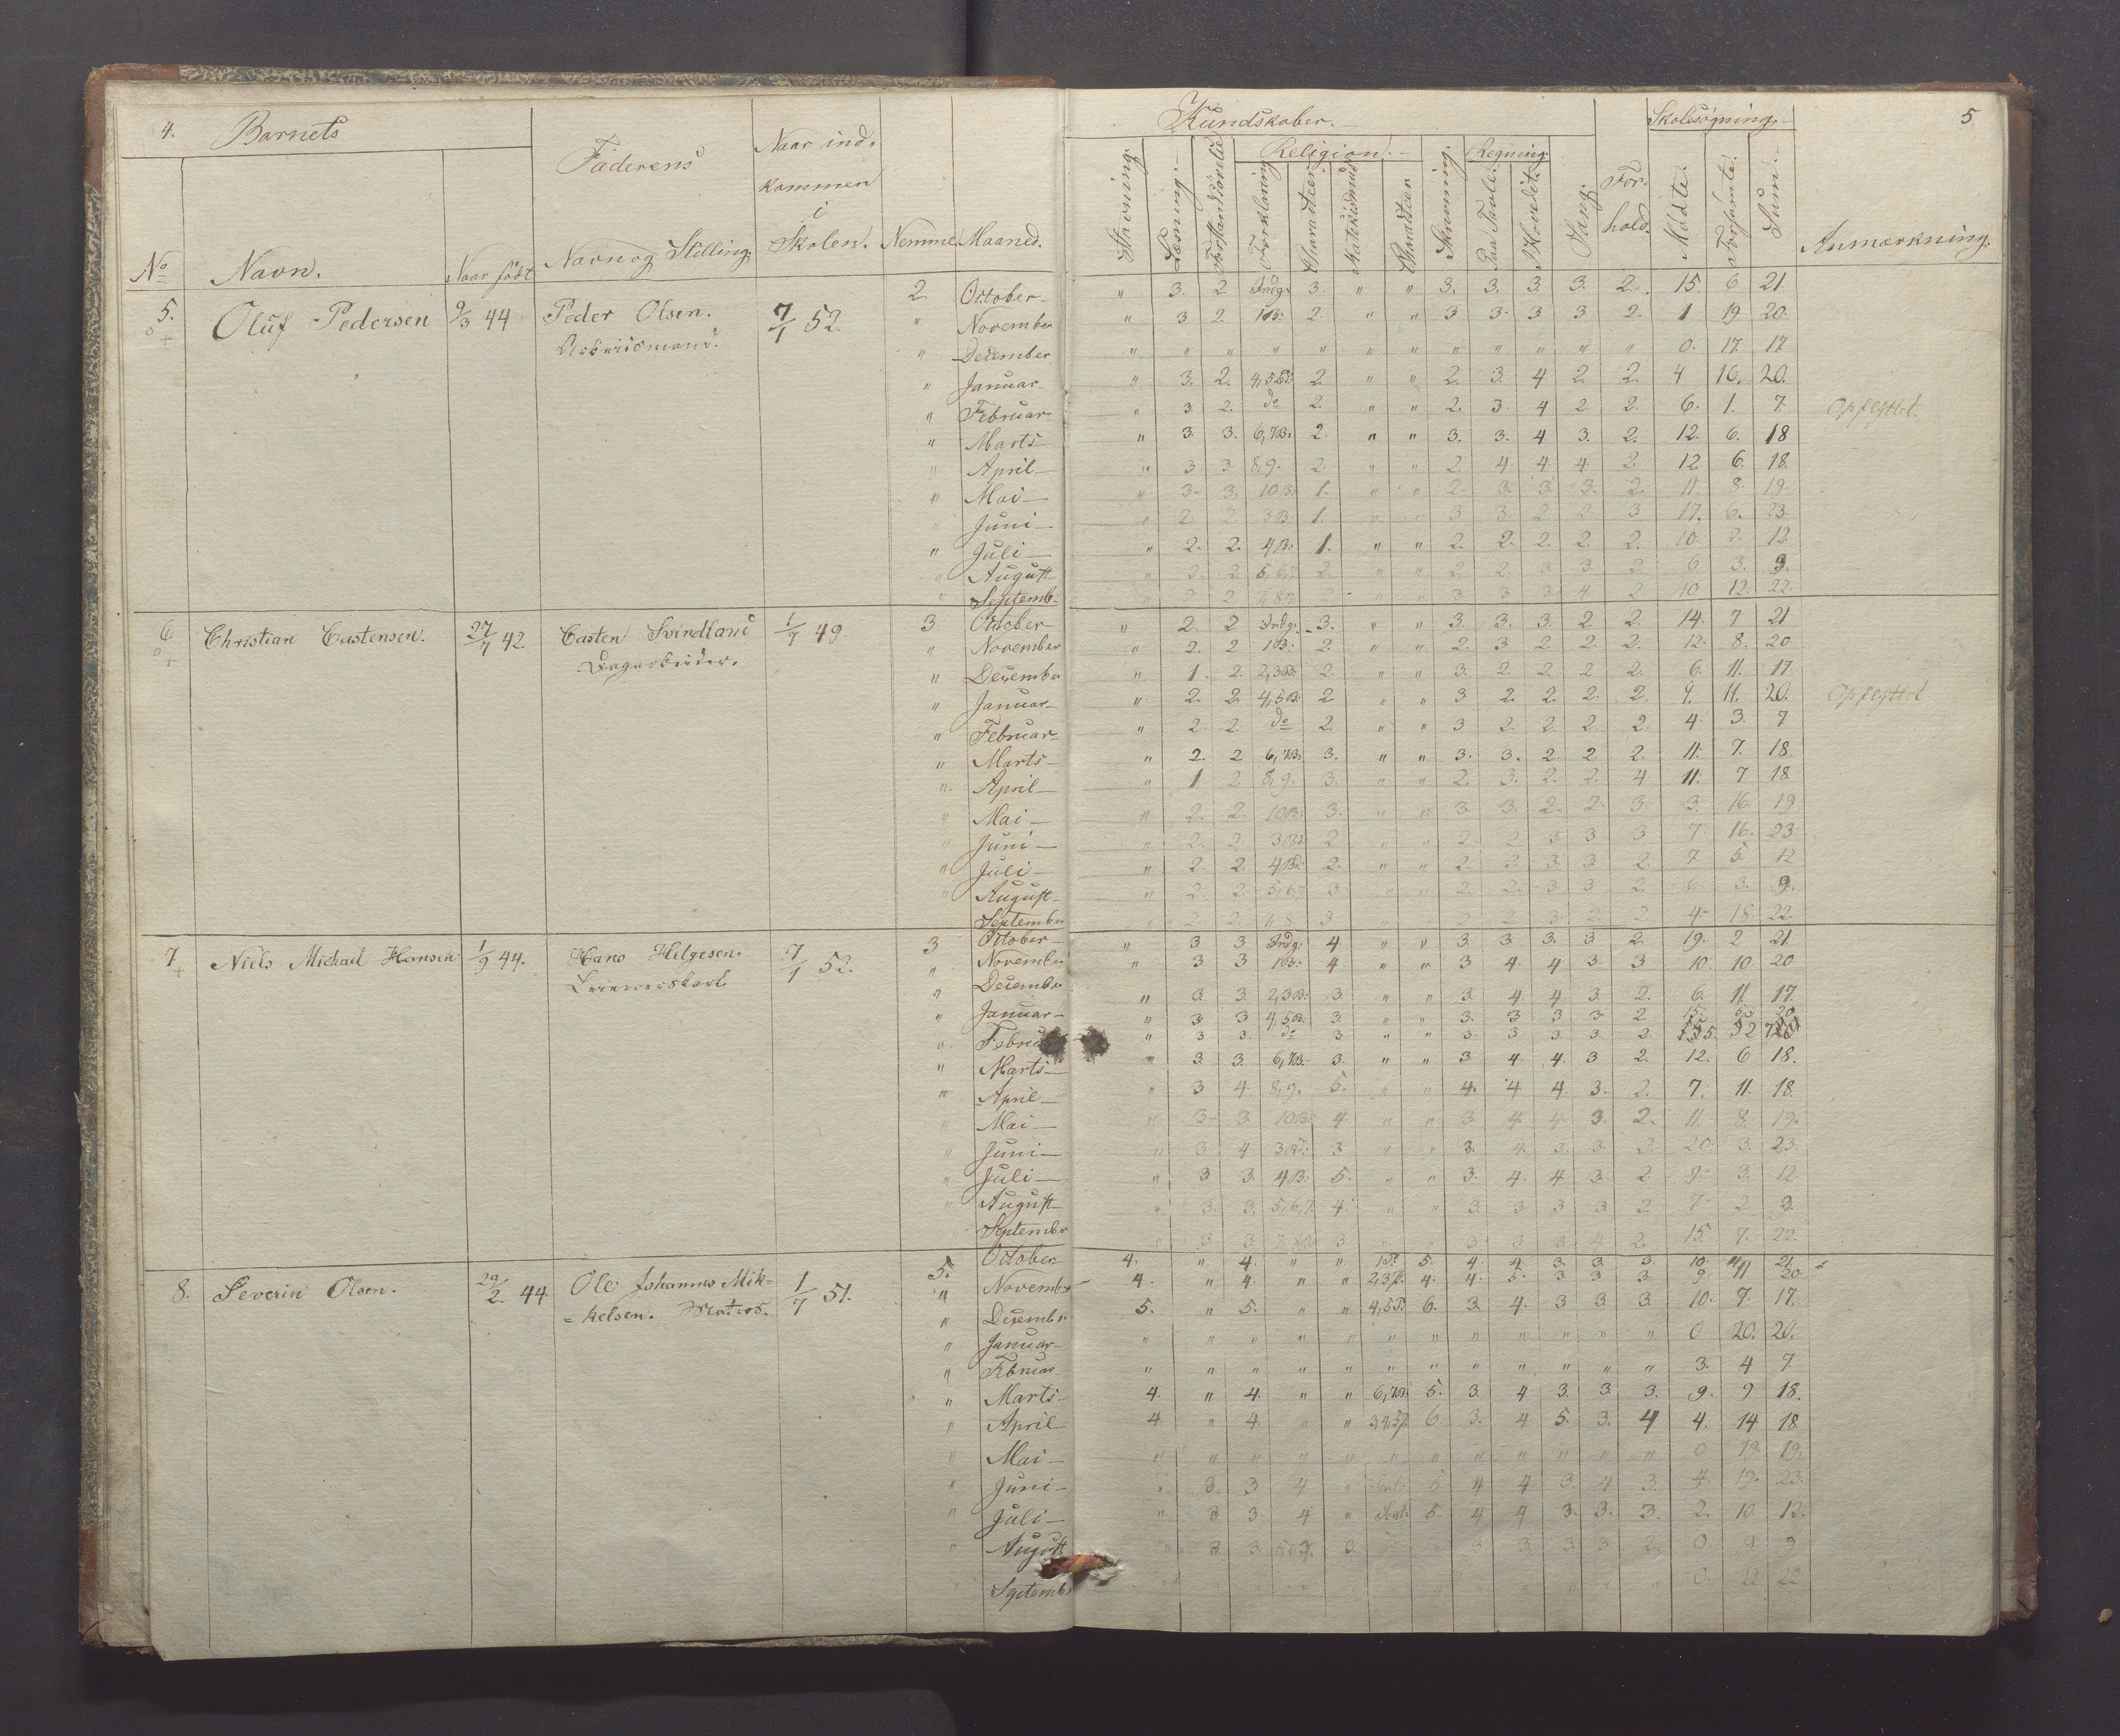 4. Barnets
Faderens
Naar ind-
kommen
i
Skolen.
No Navn. Naar født Navn og Stilling. Nemme Maaned.
5. Oluf Pedersen 9/3 44 Peder Olsen. 7/1 52 2 October
" November
" December
" Januar
" Februar
" Marts
" April
" Mai
" Juni
" Juli
" August
" Septemb
6 Christian Castensen. 27/7 42 Casten Svindland 1/7 49 3 October
" November
" December
" Januar
" Februar
" Marts
" April
" Mai
" Juni
" Juli
" August
September
7 Niels Michael Hansen 1/9 44. Hans Helgesen. 7/1 52. 3 October
" November
" December
" Januar
" Februar
" Marts
" April
" Mai
" Juni
" Juli
" August
September
October
8. Severin Olsen. 29/2 44 Ole Johannes Mik- 1/7 51. 5.
" November
= kelsen. Matros.
" December
" Januar
" Februar
" Marts
" April
" Mai
" Juni
" Juli
" August
" September
Kundskaber. Skolesøgning. 5
Religion. Regning
Stavning. Læsning. Forstandsøvelse Forklaring Charakteer Katekismus Charakteer Skrivning. Paa Tavle. I Hovedet. Sang. For-
hold. Mødte. Forsømte. Sum. Anmærkning.
" 3. 2 Indg: 3. " " 3. 3. 3. 3. 2. 15. 6 21
" 3 2. 1B: 2. " " 3 3. 3 3 2. 1 19 20.
" " " " " " " " " " " " 0. 17. 17
" 3. 2. 4,5B: 2 " " 2. 3. 4 2 2. 4 16. 20.
" 3 2. do 2. " " 2. 3 4 2 2. 6. 1. 7. Opflyttet.
" 3. 3. 6,7B: 2. " " 3. 3. 4 3. 2. 12. 6. 18
" 3 3 8,9. 2. " " 2. 4 4 4. 2. 12 6. 18.
" 3. 3. 10B: 1. " " 2. 3. 3. 3. 2. 11. 8. 19.
" 2. 2. 3B: 1. " " 3 3. 2 2 3 17. 6. 23.
" 2. 2. 4B: 1. " " 2. 2. 2. 2. 2. 10. 2. 12.
" 2. 2. 5,6,7 2. " " 2 2. 3 3 2 6 3. 9.
10 12. 22.
" 2. 2 Indg: 3. " " 3. 3. 3. 2 2. 14. 7 21
" 2. 2 1B: 2 " " 2. 3 2. 2. 2. 12. 8. 20
" 1. 2. 2,3B: 2. " " 3. 2. 2. 2 2. 6. 11. 17.
" 2. 2 4,5B: 2 " " 3 2. 2. 2. 2. 9. 11. 20. Opflyttet
" 2 2 do 2. " " 3 2. 2. 2 2. 4. 3. 7
" 2. 2 6,7B: 3. " " 3. 3. 2. 2 2. 11. 7. 18.
" 1. 2 8,9. 3. " " 2. 3. 2. 2. 4 11. 7 18
" 2. 2. 10B: 3. " " 3 3. 2. 2. 3 3 16. 19
" 2. 2. 3B: 2 " " 2. 2 3 3 3 7 16. 23
" 2. 2. 4B: 2. " " 2. 2 3 3. 2. 7 5. 12
" 2. 2. 5,6,7 3. " " 2. 2. 3 3 2. 6. 3. 9.
4. 18 22.
" 3 3 Indg: 4 " " 3. 3 3. 3 2. 19. 2 21.
" 3 3 1B: 4 " " 3 4. 4 3. 3 10. 10. 20
" 3. 3. 2,3B: 3. " " 3. 4. 4. 3. 2. 6. 11. 17.
" 3 3 4,5B. 3. " " 3. 3 3 3. 2 15. 5. 20
" 3 3. do 3 " " 3. 3 3. 3. 2.
" 3. 3. 6,7B. 3. " " 3 4. 4. 3 2. 12. 6 18.
" 3 4. 8,9. 5. " " 4. 4 4 3. 2. 7. 11. 18.
" 3 3 10B: 4. " " 3 4. 4. 3 2. 11. 8. 19.
" 3 4 3B: 3 " " 3. 4. 3. 3. 2. 20. 3. 23.
" 3 3. 4B: 5. " " 3. 4. 4 3 2 9. 3. 12.
" 3. 3. 5,6,7 4. " " 3. 3 3 3 2. 7. 2. 9.
15. 7. 22.
4. " 4. " " 5. 4 4 3. 3. 3. 10. 11 21
4. " 4. " " 2,3 4. 4. 5. 3 3 3. 9 11 20
5. " 5. " " 4,5 6. 3. 4. 3 3 3. 10. 7. 17.
" " " " " " " " " " " " 0 20. 20.
" " " " " " " " " " " " 3. 4 7.
4. " 4. " " 6,7B: 5. 3. 4 3. 3. 3. 9. 9 18.
4. " 4. " " 3,4,5 6. 3. 4. 5. 3. 4 4. 14 18.
" " " " " " " " " " " " 0 19. 19.
" 3. 3 4 " 5. 4 4 3. 4 3. 4. 19. 23.
" 3 3 4 " 5. 4 4 3. 3. 3. 2. 10 12.
3 3 3 3 2. 0 9 9
0 22 22